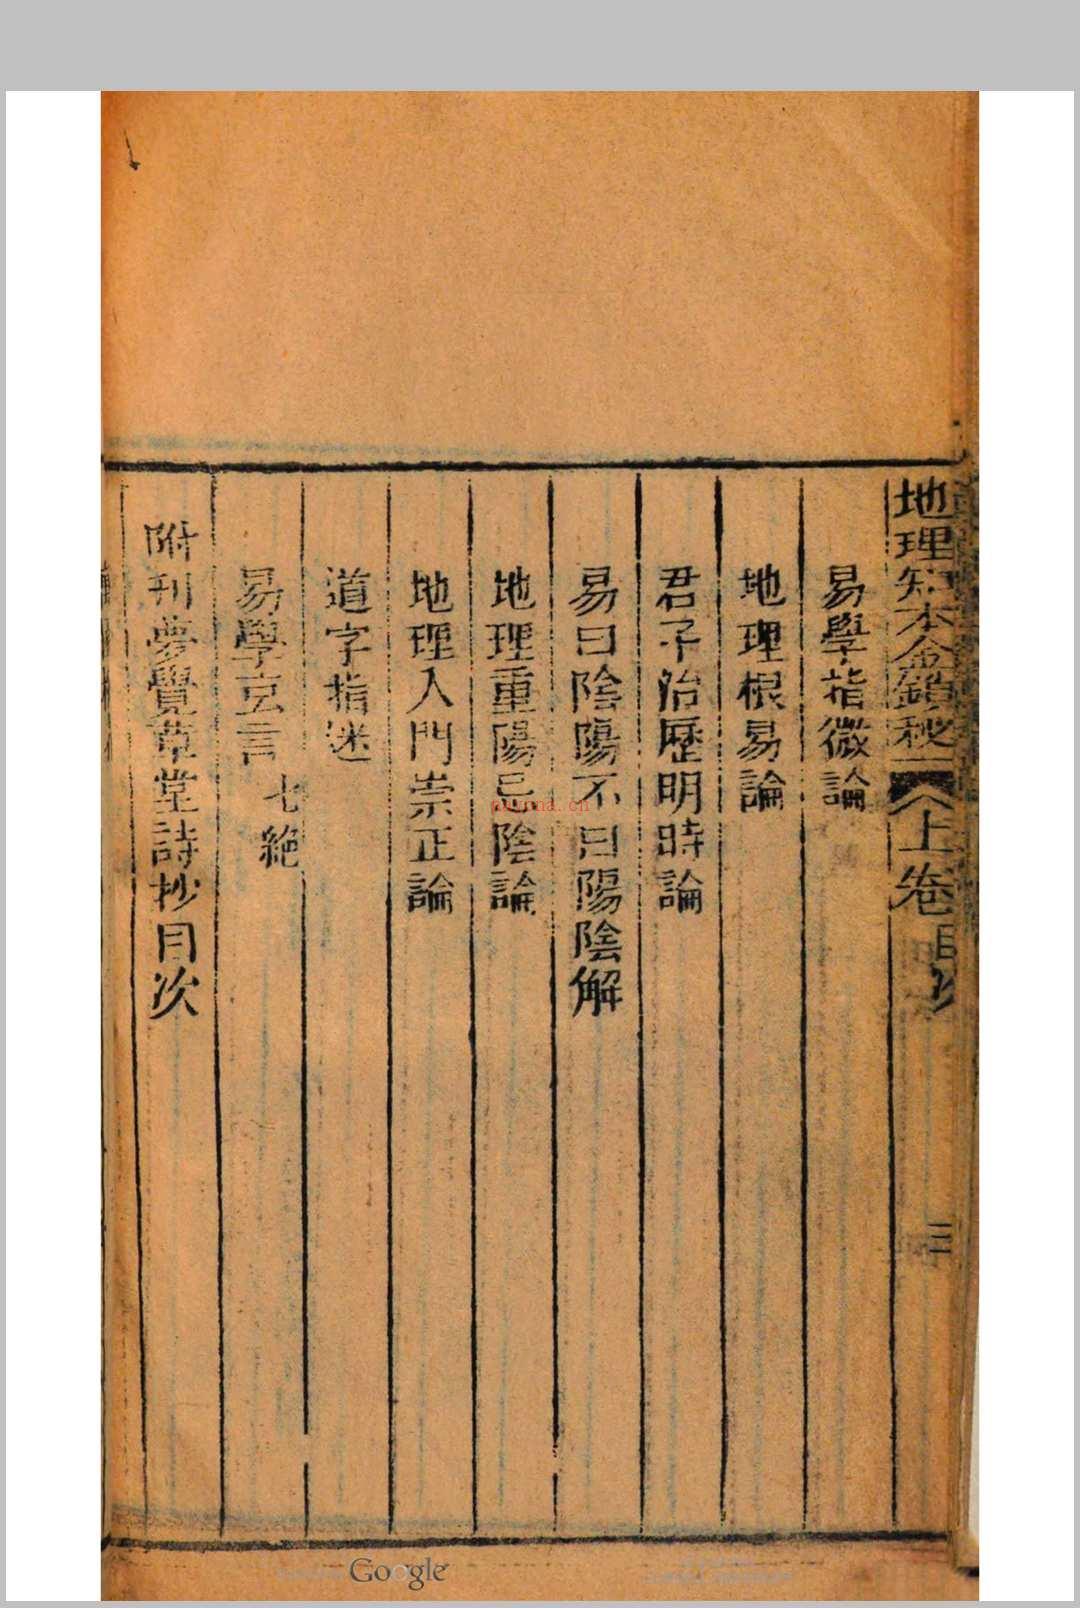 地理知本金鎖秘 上卷目次 三
易學指微論
地理根易論
君子治歷明時論
易曰陰陽不曰陽陰解
地理重陽忌陰論
地理入門崇正論
道字指迷
易學玄言 七絕
附刊夢覺草堂詩抄目次
Google